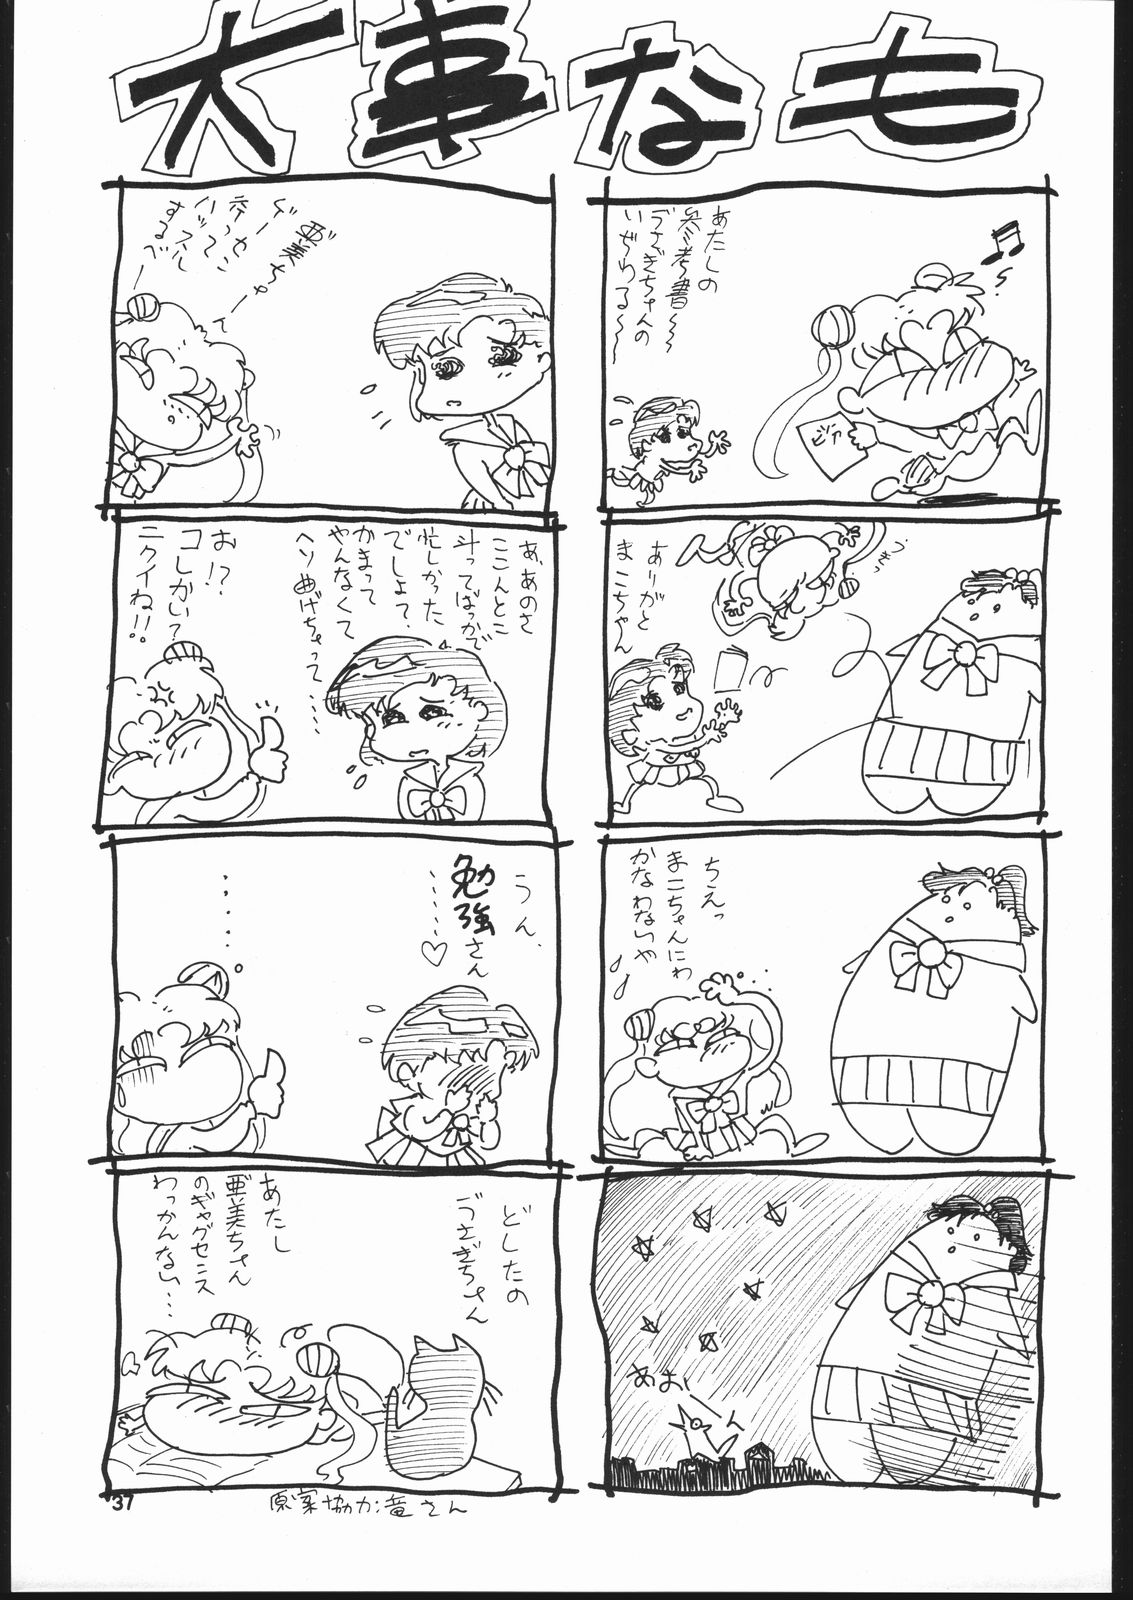 大事なも
あたしの
参考書～～
うさぎちゃんの
いぢわる～～
ピツア
ありがと
まこちゃん
ちえっ
まこちゃんにわ
かなわないや
あおーん
亜美ちゃー
するべー
あ、あのさ
ここんとこ
斗ってばっかで
忙しかった
でしょて、
かまって
やんなくて
ヘソ曲げちゃって……
お!?
コレかい?
ニクイね!!
うん、
勉強さん
……♡
・・・・・
どしたの
うさぎちゃん
あたし
亜美ちゃん
のギャグセンス
わっかんない…
37
原案協力:竜さん